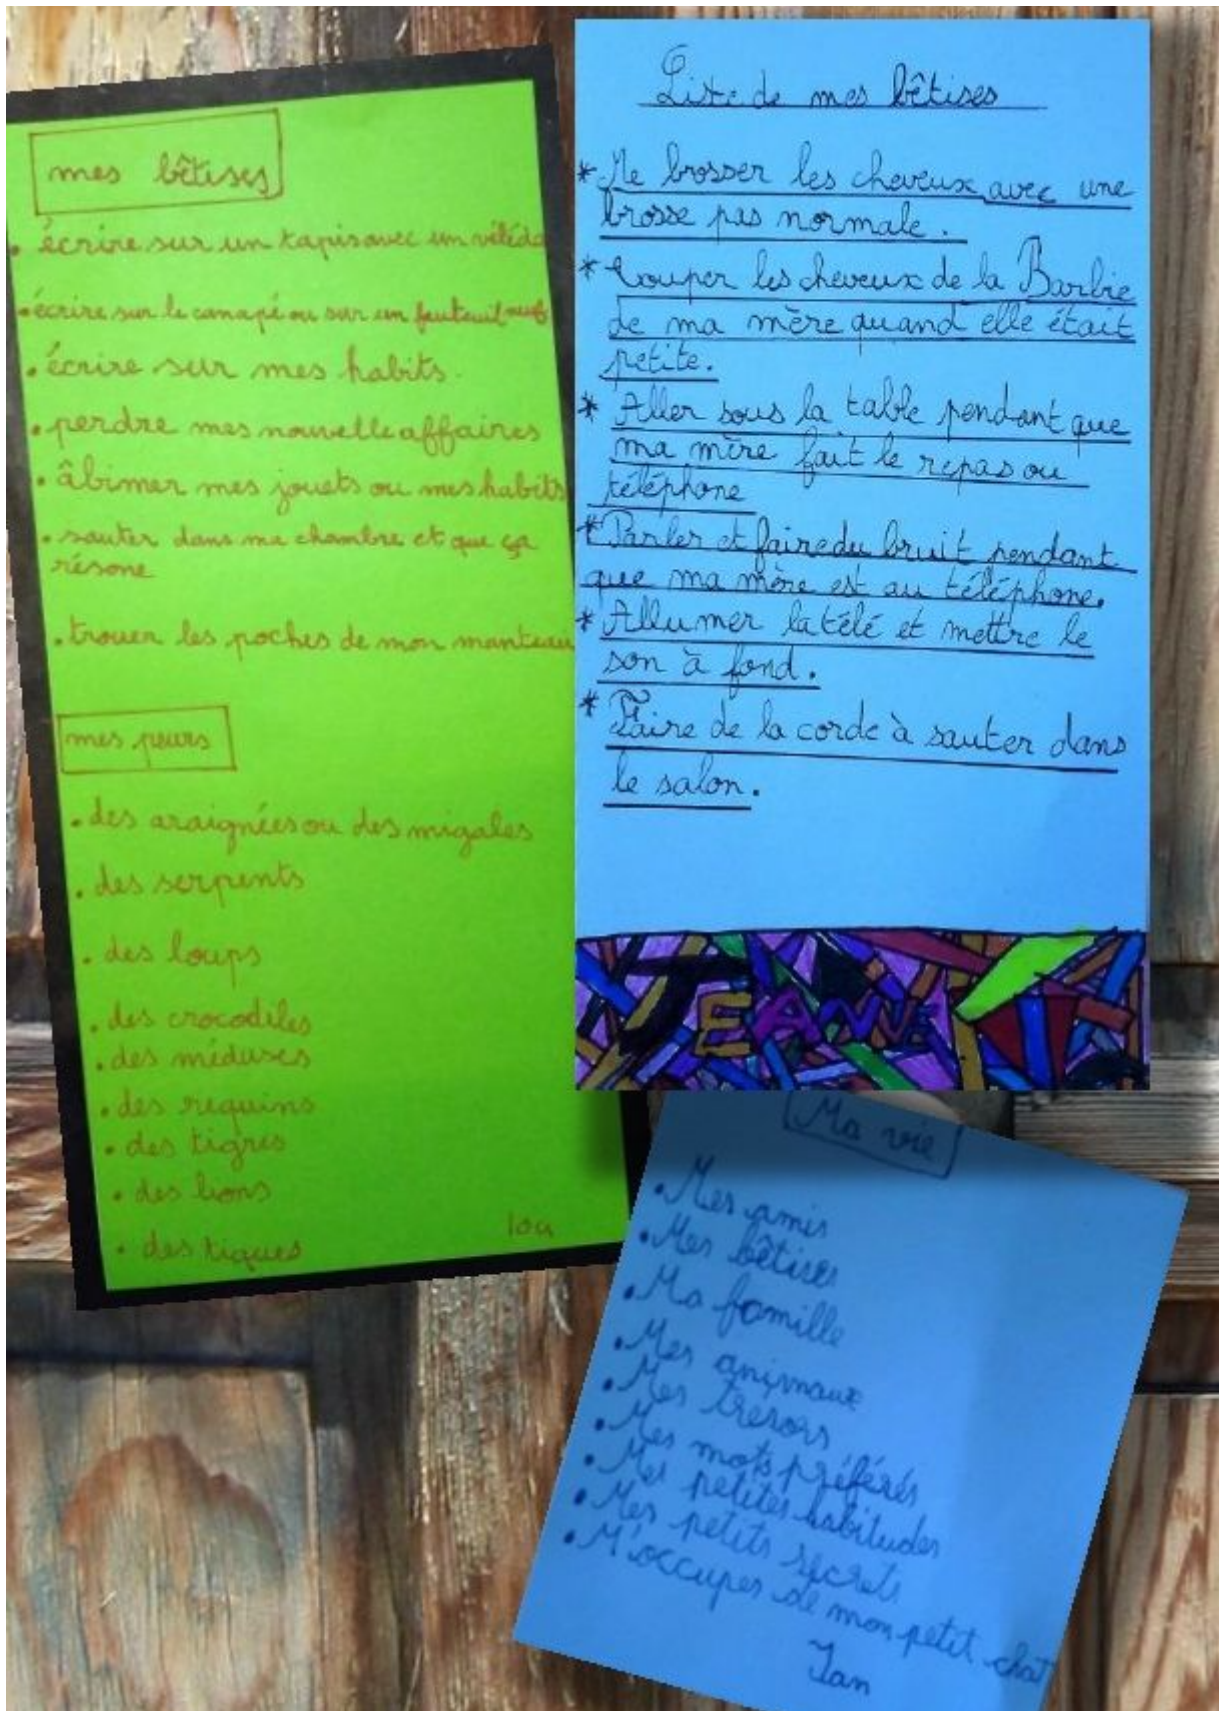 mes bêtises
. écrire sur un tapis avec un viléda
. écrire sur le canapé ou sur un fauteuil neuf
. écrire sur mes habits.
. perdre mes nouvelle affaires
. âbimer mes jouets ou mes habits
. sauter dans ma chambre et que ça
résone
. trouer les poches de mon manteau
mes peurs
. des araignées ou des migales
. des serpents
. des loups
. des crocodiles
. des méduses
. des requins
. des tigres
. des lions
. des tiques
Liste de mes bêtises
* Me brosser les cheveux avec une
brosse pas normale.
* Couper les cheveux de la Barbie
de ma mère quand elle était
petite.
* Aller sous la table pendant que
ma mère fait le repas ou
téléphone
* Parler et faire du bruit pendant
que ma mère est au téléphone.
* Allumer la télé et mettre le
son à fond.
* Faire de la corde à sauter dans
le salon.
JEANNE
Ma vie
. Mes amis
. Mes bêtises
. Ma famille
. Mes animaux
. Mes tresors
. Mes mots préférés
. Mes petites habitudes
. Mes petits secrets
. M'occuper de mon petit chat
Ian